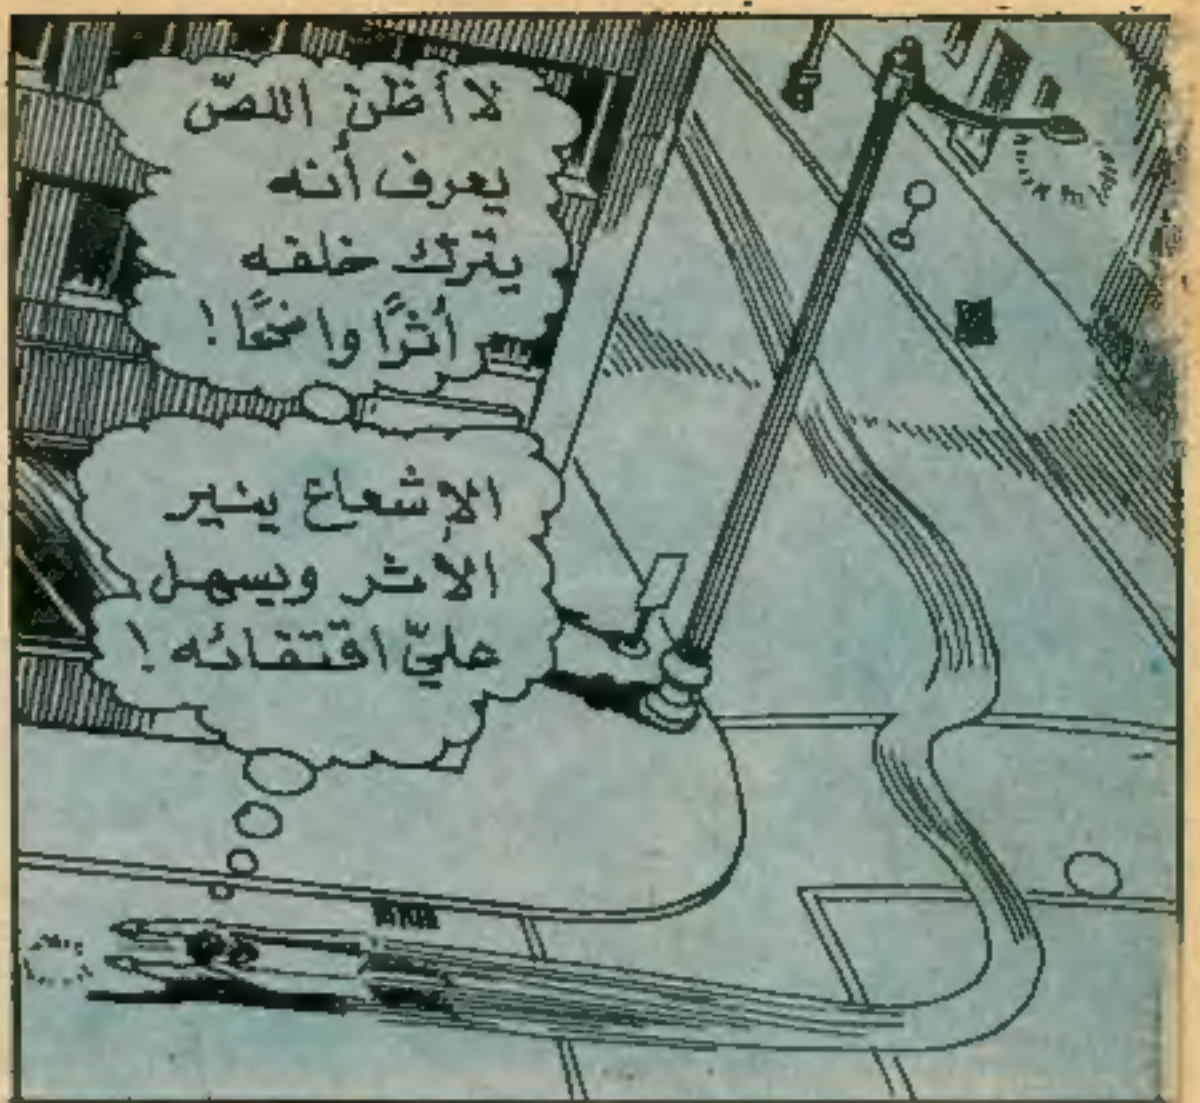 لا أظن اللصّ
يعرف أنه
يترك خلفه
أثرًا واضحًا !
الإشعاع ينير
الأثر ويسهل
عليّ اقتفائه !